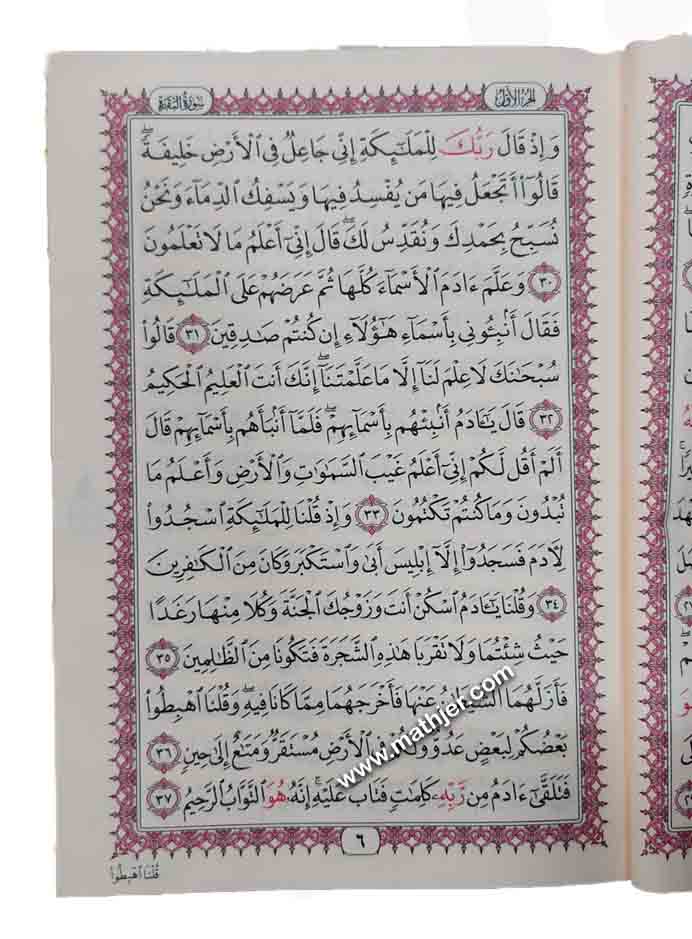 سورة البقرة
الجزء الأول
وَإِذْ قَالَ رَبُّكَ لِلْمَلَٰٓئِكَةِ إِنِّى جَاعِلٌ فِى ٱلْأَرْضِ خَلِيفَةًۖ
قَالُوٓا۟ أَتَجْعَلُ فِيهَا مَن يُفْسِدُ فِيهَا وَيَسْفِكُ ٱلدِّمَآءَ وَنَحْنُ
نُسَبِّحُ بِحَمْدِكَ وَنُقَدِّسُ لَكَۖ قَالَ إِنِّىٓ أَعْلَمُ مَا لَا تَعْلَمُونَ
٣٠ وَعَلَّمَ ءَادَمَ ٱلْأَسْمَآءَ كُلَّهَا ثُمَّ عَرَضَهُمْ عَلَى ٱلْمَلَٰٓئِكَةِ
فَقَالَ أَنۢبِـُٔونِى بِأَسْمَآءِ هَٰٓؤُلَآءِ إِن كُنتُمْ صَٰدِقِينَ ٣١ قَالُوا۟
سُبْحَٰنَكَ لَا عِلْمَ لَنَآ إِلَّا مَا عَلَّمْتَنَآۖ إِنَّكَ أَنتَ ٱلْعَلِيمُ ٱلْحَكِيمُ
٣٢ قَالَ يَٰٓـَٔادَمُ أَنۢبِئْهُم بِأَسْمَآئِهِمْۖ فَلَمَّآ أَنۢبَأَهُم بِأَسْمَآئِهِمْ قَالَ
أَلَمْ أَقُل لَّكُمْ إِنِّىٓ أَعْلَمُ غَيْبَ ٱلسَّمَٰوَٰتِ وَٱلْأَرْضِ وَأَعْلَمُ مَا
تُبْدُونَ وَمَا كُنتُمْ تَكْتُمُونَ ٣٣ وَإِذْ قُلْنَا لِلْمَلَٰٓئِكَةِ ٱسْجُدُوا۟
لِـَٔادَمَ فَسَجَدُوٓا۟ إِلَّآ إِبْلِيسَ أَبَىٰ وَٱسْتَكْبَرَ وَكَانَ مِنَ ٱلْكَٰفِرِينَ
٣٤ وَقُلْنَا يَٰٓـَٔادَمُ ٱسْكُنْ أَنتَ وَزَوْجُكَ ٱلْجَنَّةَ وَكُلَا مِنْهَا رَغَدًا
حَيْثُ شِئْتُمَا وَلَا تَقْرَبَا هَٰذِهِ ٱلشَّجَرَةَ فَتَكُونَا مِنَ ٱلظَّٰلِمِينَ ٣٥
فَأَزَلَّهُمَا ٱلشَّيْطَٰنُ عَنْهَا فَأَخْرَجَهُمَا مِمَّا كَانَا فِيهِۖ وَقُلْنَا ٱهْبِطُوا۟
بَعْضُكُمْ لِبَعْضٍ عَدُوٌّۖ وَلَكُمْ فِى ٱلْأَرْضِ مُسْتَقَرٌّ وَمَتَٰعٌ إِلَىٰ حِينٍ ٣٦
فَتَلَقَّىٰٓ ءَادَمُ مِن رَّبِّهِۦ كَلِمَٰتٍ فَتَابَ عَلَيْهِۚ إِنَّهُۥ هُوَ ٱلتَّوَّابُ ٱلرَّحِيمُ ٣٧
٦
قُلْنَا ٱهْبِطُوا۟
www.mathjer.com